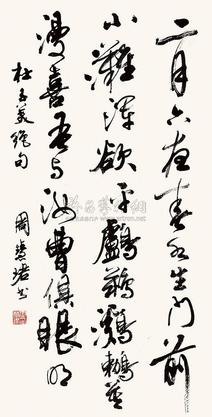 二月六夜春水生门前
小灘渾欲平鸕鷀鸂鶒莫
漫喜吾与汝曹俱眼明
杜子美絶句
周慧珺书